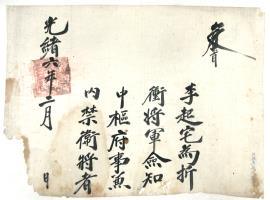 敎旨
李起宅爲折
衝將軍僉知
中樞府事兼
內禁衛將者
光緖六年二月
日